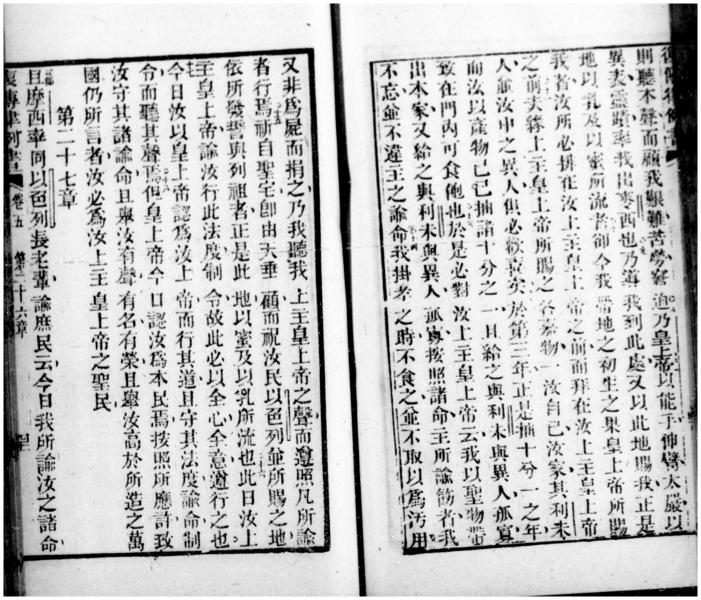 則聽本聲而顧我艱難苦勞窘迫乃皇上帝以能手伸臂太嚴以
異表靈蹟率我出麥西也乃導我到此處又以此地賜我正是
地以乳及以蜜所流者卽今我帶地之初生之果皇上帝所賜
我者汝所必排在汝上主皇上帝之前而拜在汝上主皇上帝
之前夫緣上主皇上帝所賜之各嘉物汝自己汝家其利未
人並汝中之異人俱必歡喜矣於第三年正是抽十分一之年
而汝以產物已抽諸十分之一且給之與利未與異人孤寡
致在門內可食飽也於是必對汝上主皇上帝云我以聖物帶
出本家又給之與利未與異人孤寡按照諸命主所諭飭者我
不忘並不違主之諭命我掛孝之時不食之並不取以爲汚用
又非爲屍而捐之乃我聽我上主皇上帝之聲而遵照凡所諭
者行焉祈自聖宅卽由天垂顧而祝汝民以色列並所賜之地
依所發誓與列祖者正是此地以蜜及以乳所流也此日汝上
主皇上帝諭汝行此法度制令故此必以全心全意遵行之也
今日汝以皇上帝認爲汝上帝而行其道且守其法度諭命制
令而聽其聲焉但皇上帝今日認汝爲本民焉按照所應許致
汝守其諸諭命且舉汝有聲有名有榮且舉汝高於所造之萬
國仍所言者汝必爲汝上主皇上帝之聖民
第二十七章
且摩西率同以色列長老輩諭庶民云今日我所諭汝之諸命
復傳律例書 卷五 第二十六章